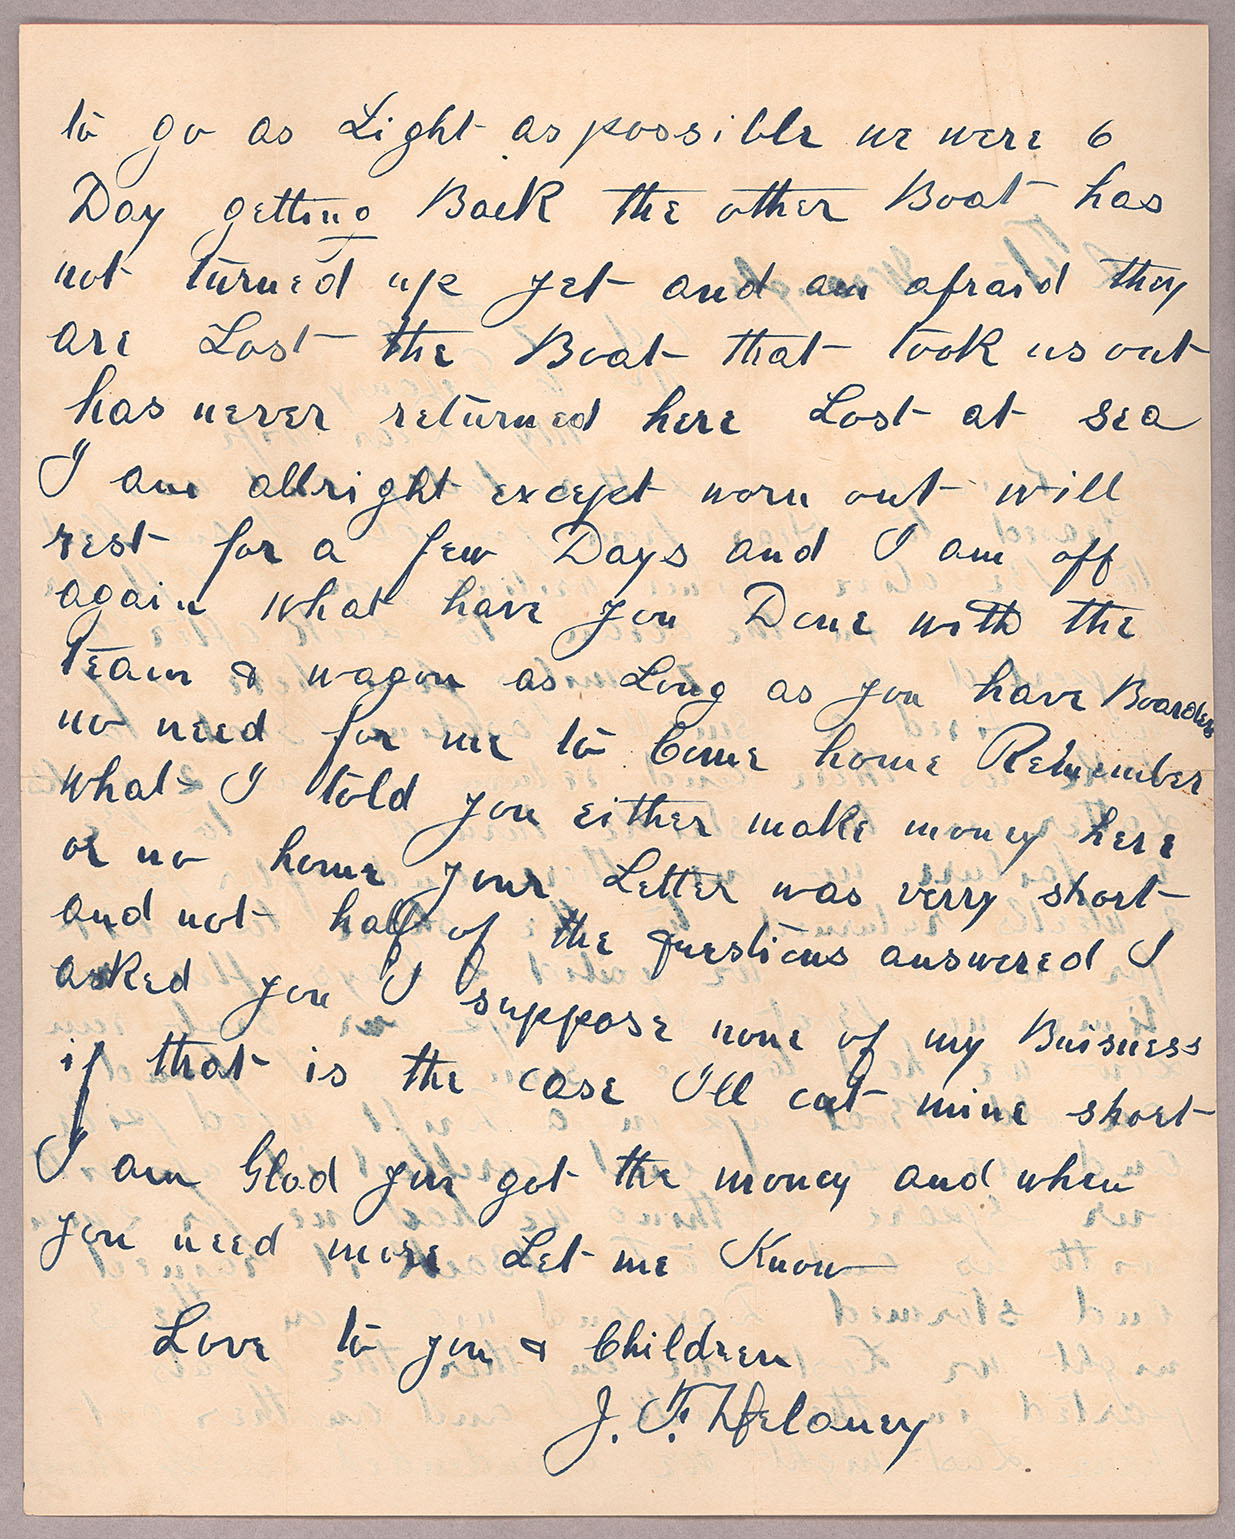 to go as Light as possible we were 6
Day getting Back the other Boat has
not turned up yet and am afraid they
are Lost the Boat that took us out
has never returned here Lost at sea
I am allright except worn out will
rest for a few Days and I am off
again what have you Done with the
team & wagon as Long as you have Boarders
no need for me to Come home Remember
what I told you either make money here
or no home your Letter was verry short
and not half of the questions answered I
asked you I suppose none of my Buisness
if that is the case I'll cut mine short
I am Glad you got the money and when
you need more Let me Know
Love to you & Children
J. F. Delaney